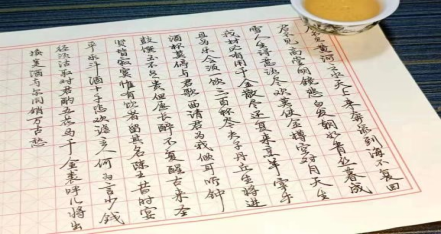 君不见黄河之水天上来奔流到海不复回
君不见高堂明镜悲白发朝如青丝暮成
雪人生得意须尽欢莫使金樽空对月天生
我材必有用千金散尽还复来烹羊宰牛
且为乐会须一饮三百杯岑夫子丹丘生将进
酒杯莫停与君歌一曲请君为我倾耳听钟
鼓馔玉不足贵但愿长醉不复醒古来圣
贤皆寂寞惟有饮者留其名陈王昔时宴
平乐斗酒十千恣欢谑主人何为言少钱
径须沽取对君酌五花马千金裘呼儿将出
换美酒与尔同销万古愁